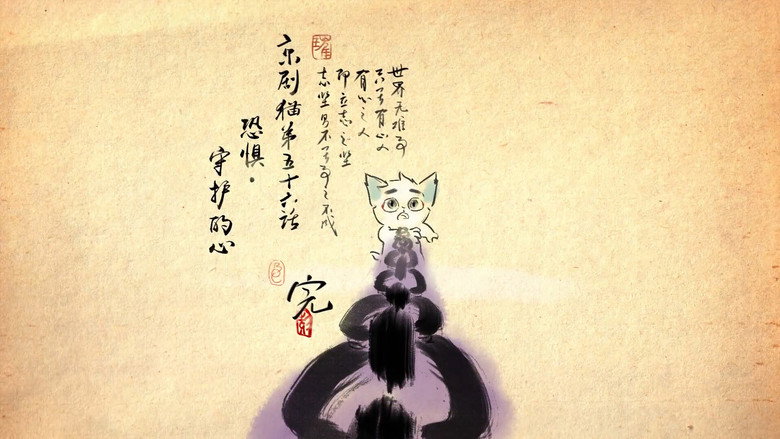 世界无难事
只畏有心人
有心之人
即立志之坚
志坚则不畏事之不成
京剧猫第五十六话
恐惧。
守护的心
完